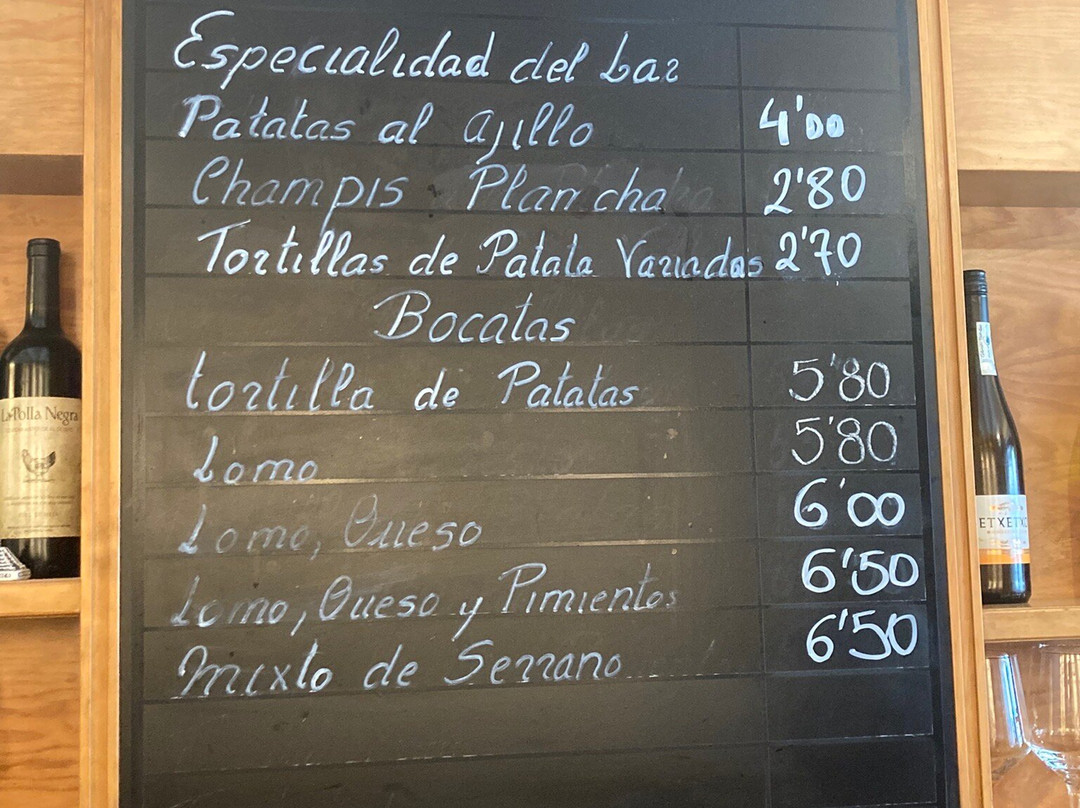 Especialidad del bar
Patatas al ajillo 4'00
Champis Plancha 2'80
Tortillas de Patata Variadas 2'70
Bocatas
tortilla de Patatas 5'80
Lomo 5'80
Lomo, Queso 6'00
Lomo, Queso y Pimientos 6'50
Mixto de Serrano 6'50
La Polla Negra
ETXE